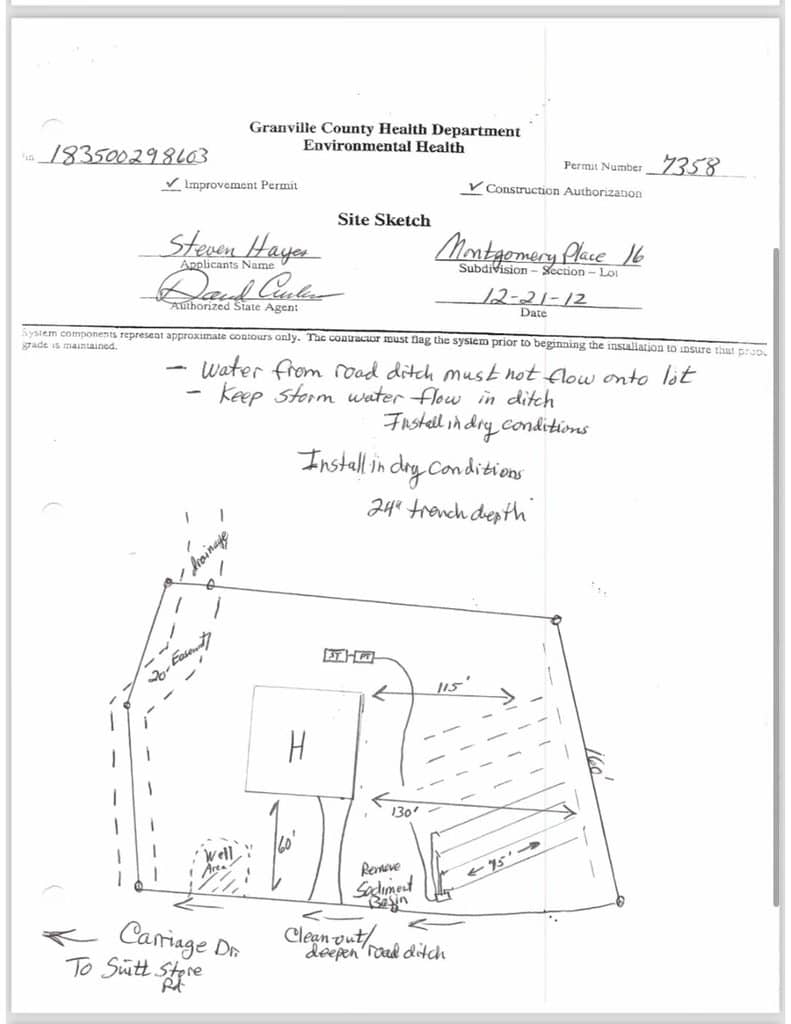 Granville County Health Department
Environmental Health
183500298603
Permit Number 7358
✓ Improvement Permit
✓ Construction Authorization
Site Sketch
Steven Hayes
Applicants Name
Montgomery Place 16
Subdivision – Section – Lot
Authorized State Agent
12-21-12
Date
System components represent approximate contours only. The contractor must flag the system prior to beginning the installation to insure that
grade is maintained.
- Water from road ditch must not flow onto lot
- Keep storm water flow in ditch
Install in dry conditions
Install in dry conditions
24" trench depth
drainage
20' Easement
ST PT
115'
H
160'
130'
60'
75'
Well
Area
Remove
Sediment
Basin
Carriage Dr.
To Suitt Store
Rd
Clean-out/
deepen road ditch